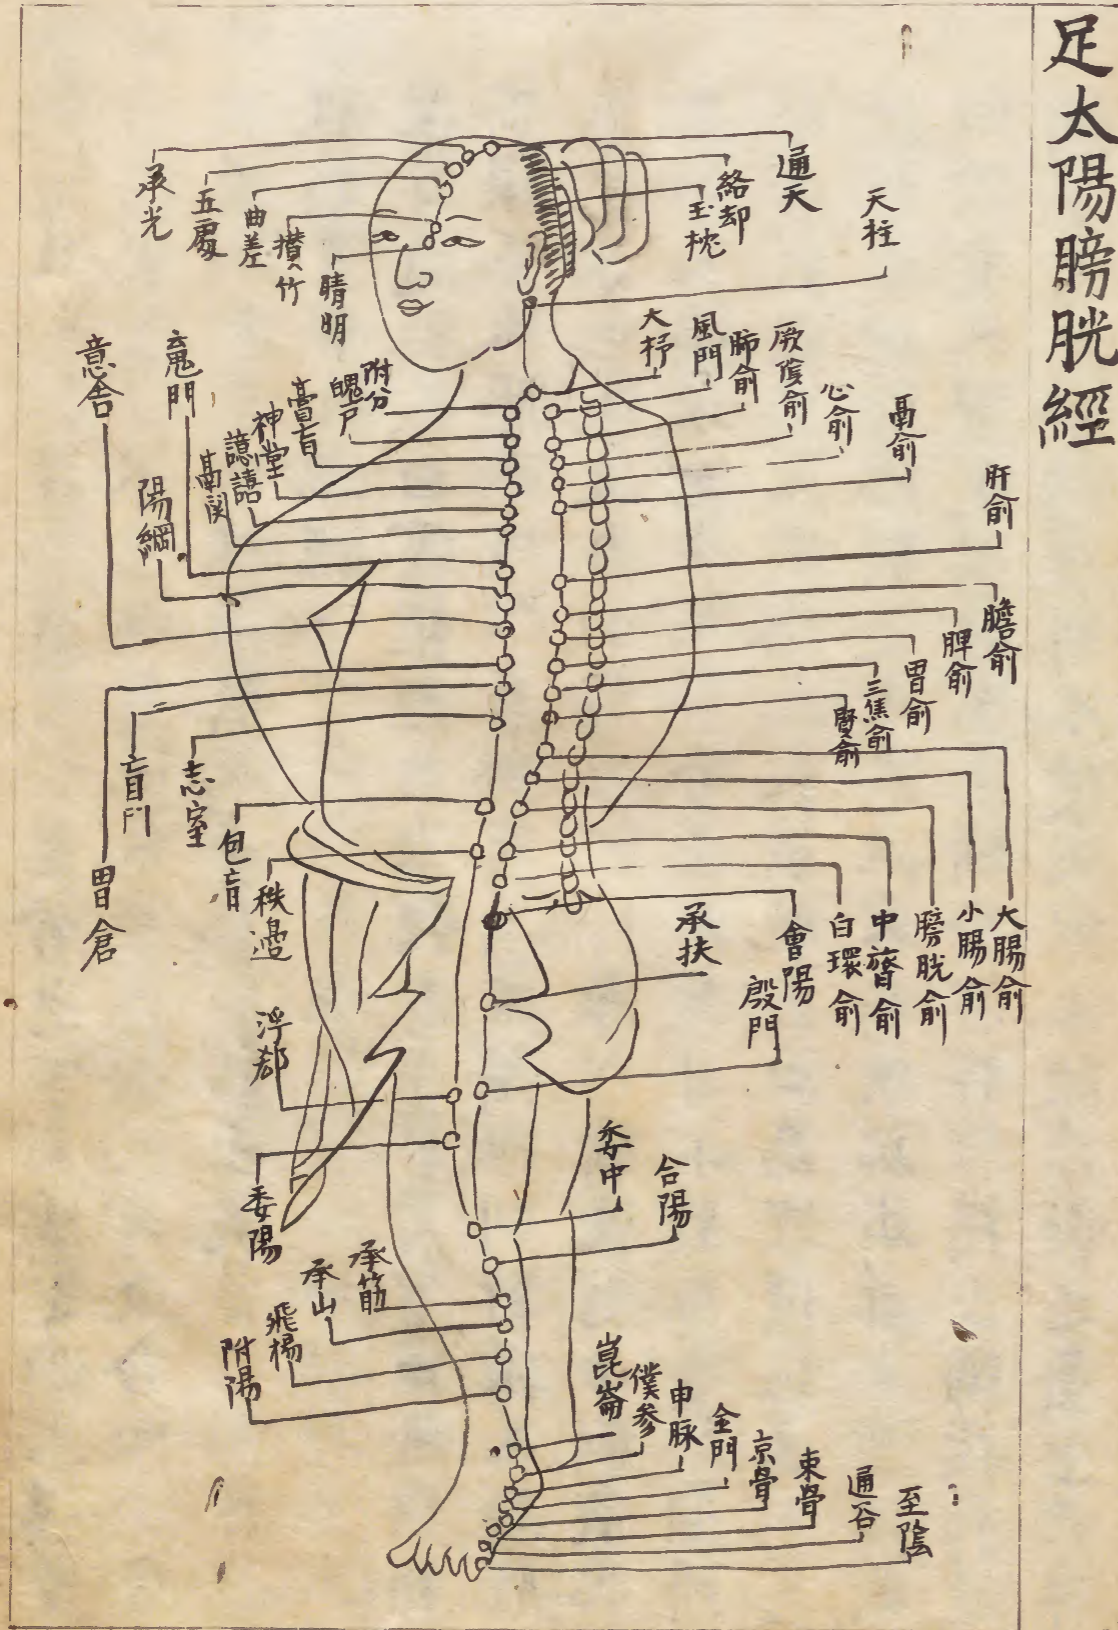 足太陽膀胱經
通天
絡却
玉枕
天柱
承光
五處
曲差
攅竹
睛明
大杼
風門
肺俞
厥陰俞
心俞
鬲俞
肝俞
膽俞
脾俞
胃俞
三焦俞
腎俞
大腸俞
小腸俞
膀胱俞
中膂俞
白環俞
會陽
承扶
殷門
附分
魄戶
膏肓
神堂
譩譆
鬲関
魂門
陽綱
意舎
胃倉
肓門
志室
包肓
秩邉
浮郄
委陽
委中
合陽
承筋
承山
飛揚
附陽
崑崙
僕参
申脉
金門
京骨
束骨
通谷
至陰